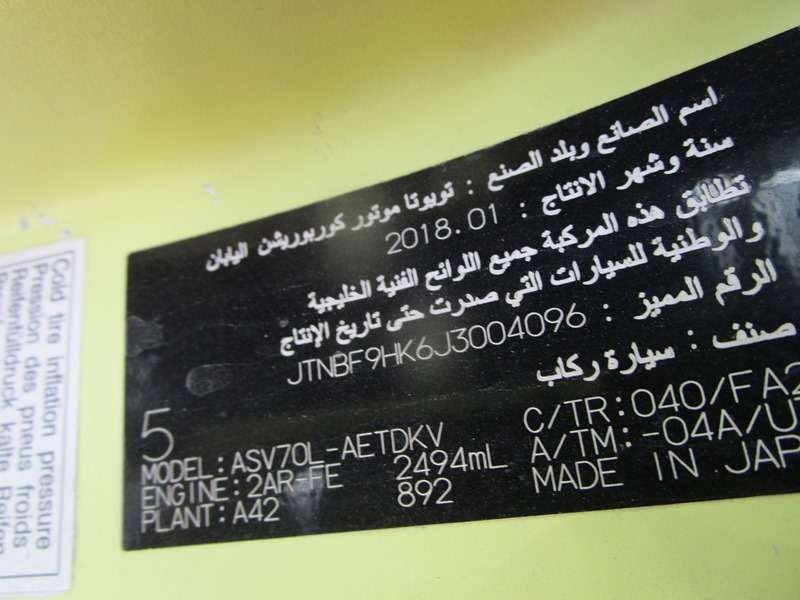 اسم الصانع وبلد الصنع : تويوتا موتور كوربوريشن اليابان
سنة وشهر الانتاج : 2018.01
تطابق هذه المركبة جميع اللوائح الفنية الخليجية
والوطنية للسيارات التي صدرت حتى تاريخ الإنتاج
الرقم المميز : JTNBF9HK6J3004096
صنف : سيارة ركاب
5
MODEL:ASV70L-AETDKV
ENGINE:2AR-FE 2494mL
PLANT:A42 892
C/TR:040/FA2
A/TM:-04A/U
MADE IN JAP
Cold tire inflation pressure
Pression des pneus froids
Reifenfülldruck kalte Reifen